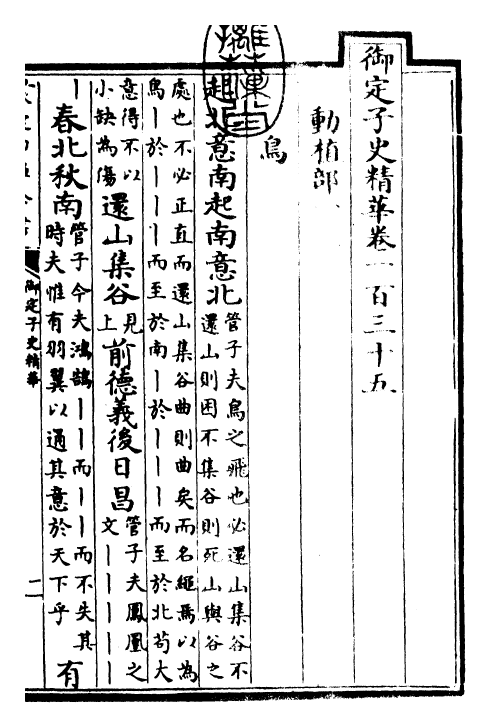 御定子史精華卷一百三十五
動植部
鳥
起北意南起南意北
管子夫鳥之飛也必還山集谷不
還山則困不集谷則死山與谷之
處也不必正直而還山集谷曲則曲矣而名繩焉以為
鳥丨於丨丨丨而至於南丨於丨丨丨而至於北苟大
意得不以
小缺為傷
還山集谷
見
上
前德義後日昌
管子夫鳳凰之
文丨丨丨丨
丨
春北秋南
管子今夫鴻鵠丨丨而丨丨而不失其
時夫惟有羽翼以通其意於天下乎
有
御定子史精華
二